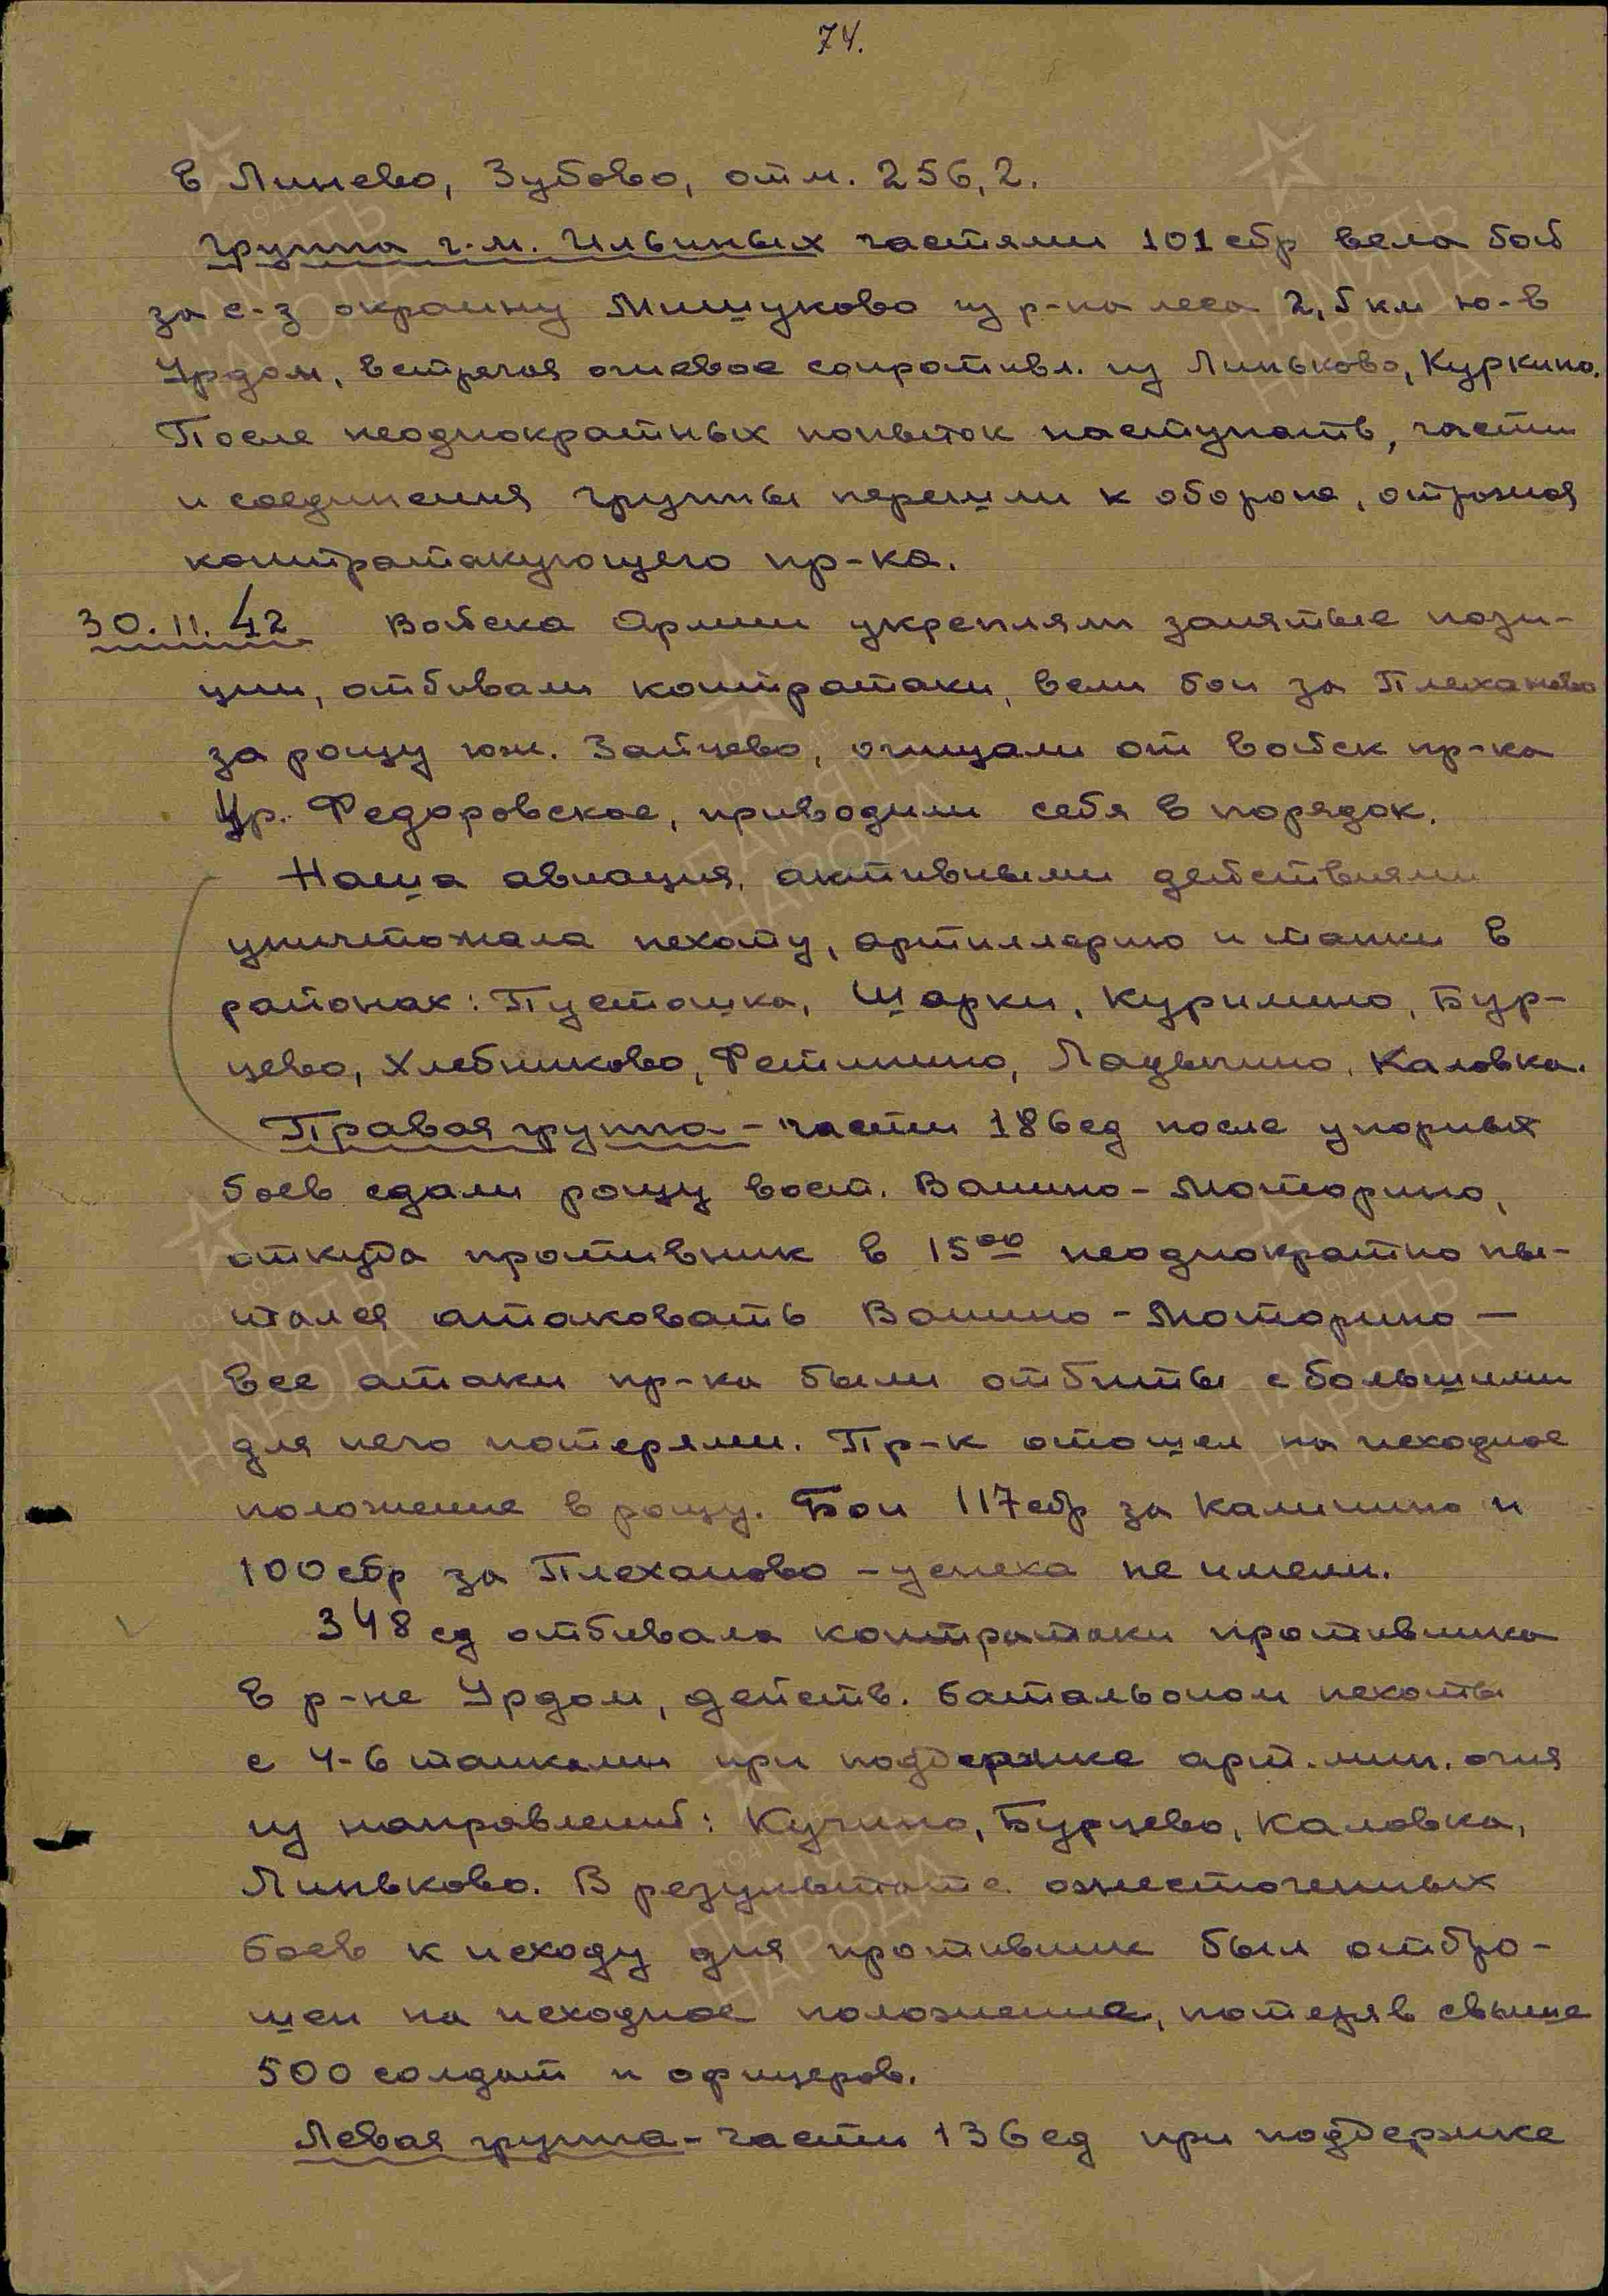 74.
в Линево, Зубово, отм. 256,2.
Группа г.м. Ильиных частями 101 сбр вела бой
за с-з окраину Мишуково из р-на леса 2,5 км ю-в
Урдом, встречая огневое сопротивл. из Линьково, Куркино.
После неоднократных попыток наступать, части
и соединения группы перешли к обороне, отражая
контратакующего пр-ка.
30.11.42 Войска Армии укрепляли занятые пози-
ции, отбивали контратаки, вели бои за Плеханово
за рощу юж. Зайцево, очищали от войск пр-ка
Ур. Федоровское, приводили себя в порядок.
Наша авиация, активными действиями
уничтожала пехоту, артиллерию и танки в
районах: Пусташка, Шарки, Куримино, Бур-
цево, Хлебниково, Фетинино, Ладыгино, Каловка.
Правая группа - части 186 сд после упорных
боев сдали рощу вост. Ванино-Моторино,
откуда противник в 15⁰⁰ неоднократно пы-
тался атаковать Ванино-Моторино —
все атаки пр-ка были отбиты с большими
для него потерями. Пр-к отошел на исходное
положение в рощу. Бои 117 сбр за Калинино и
100 сбр за Плеханово - успеха не имели.
348 сд отбивала контратаки противника
в р-не Урдом, действ. батальоном пехоты
с 4-6 танками при поддержке арт.мин. огня
из направлений: Кучино, Бурцево, Каловка,
Линьково. В результате ожесточенных
боев к исходу дня противник был отбро-
шен на исходное положение, потеряв свыше
500 солдат и офицеров.
Левая группа - части 136 сд при поддержке
1941-1945
ПАМЯТЬ
НАРОДА